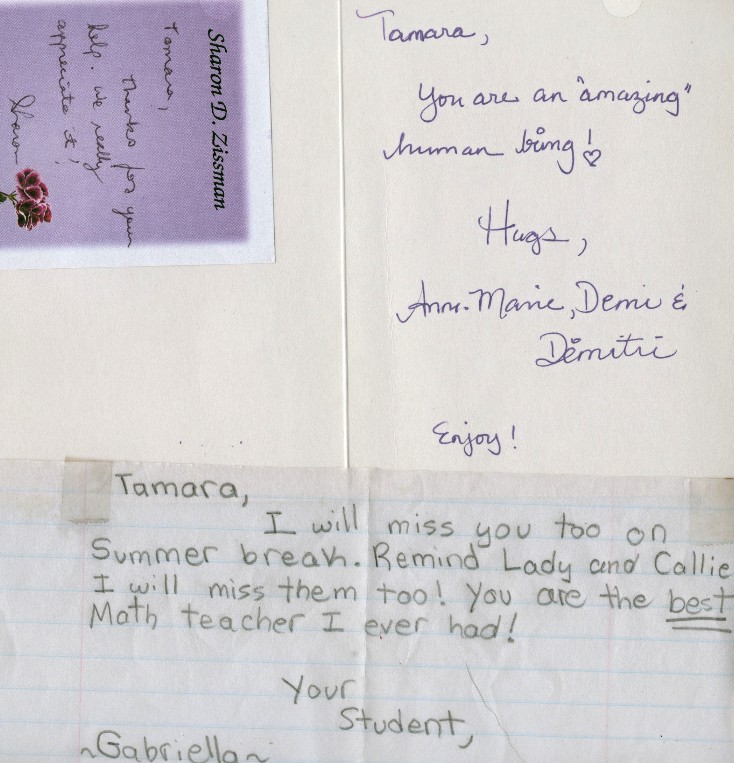 Sharon D. Zissman
Tamara,
Thanks for your
help. We really
appreciate it!
Sharon
Tamara,
You are an "amazing"
human being! ♡
Hugs,
Ann-Marie, Demi &
Demitri
Enjoy!
Tamara,
I will miss you too on
Summer break. Remind Lady and Callie
I will miss them too! You are the best
Math teacher I ever had!
Your
Student,
~Gabriella~